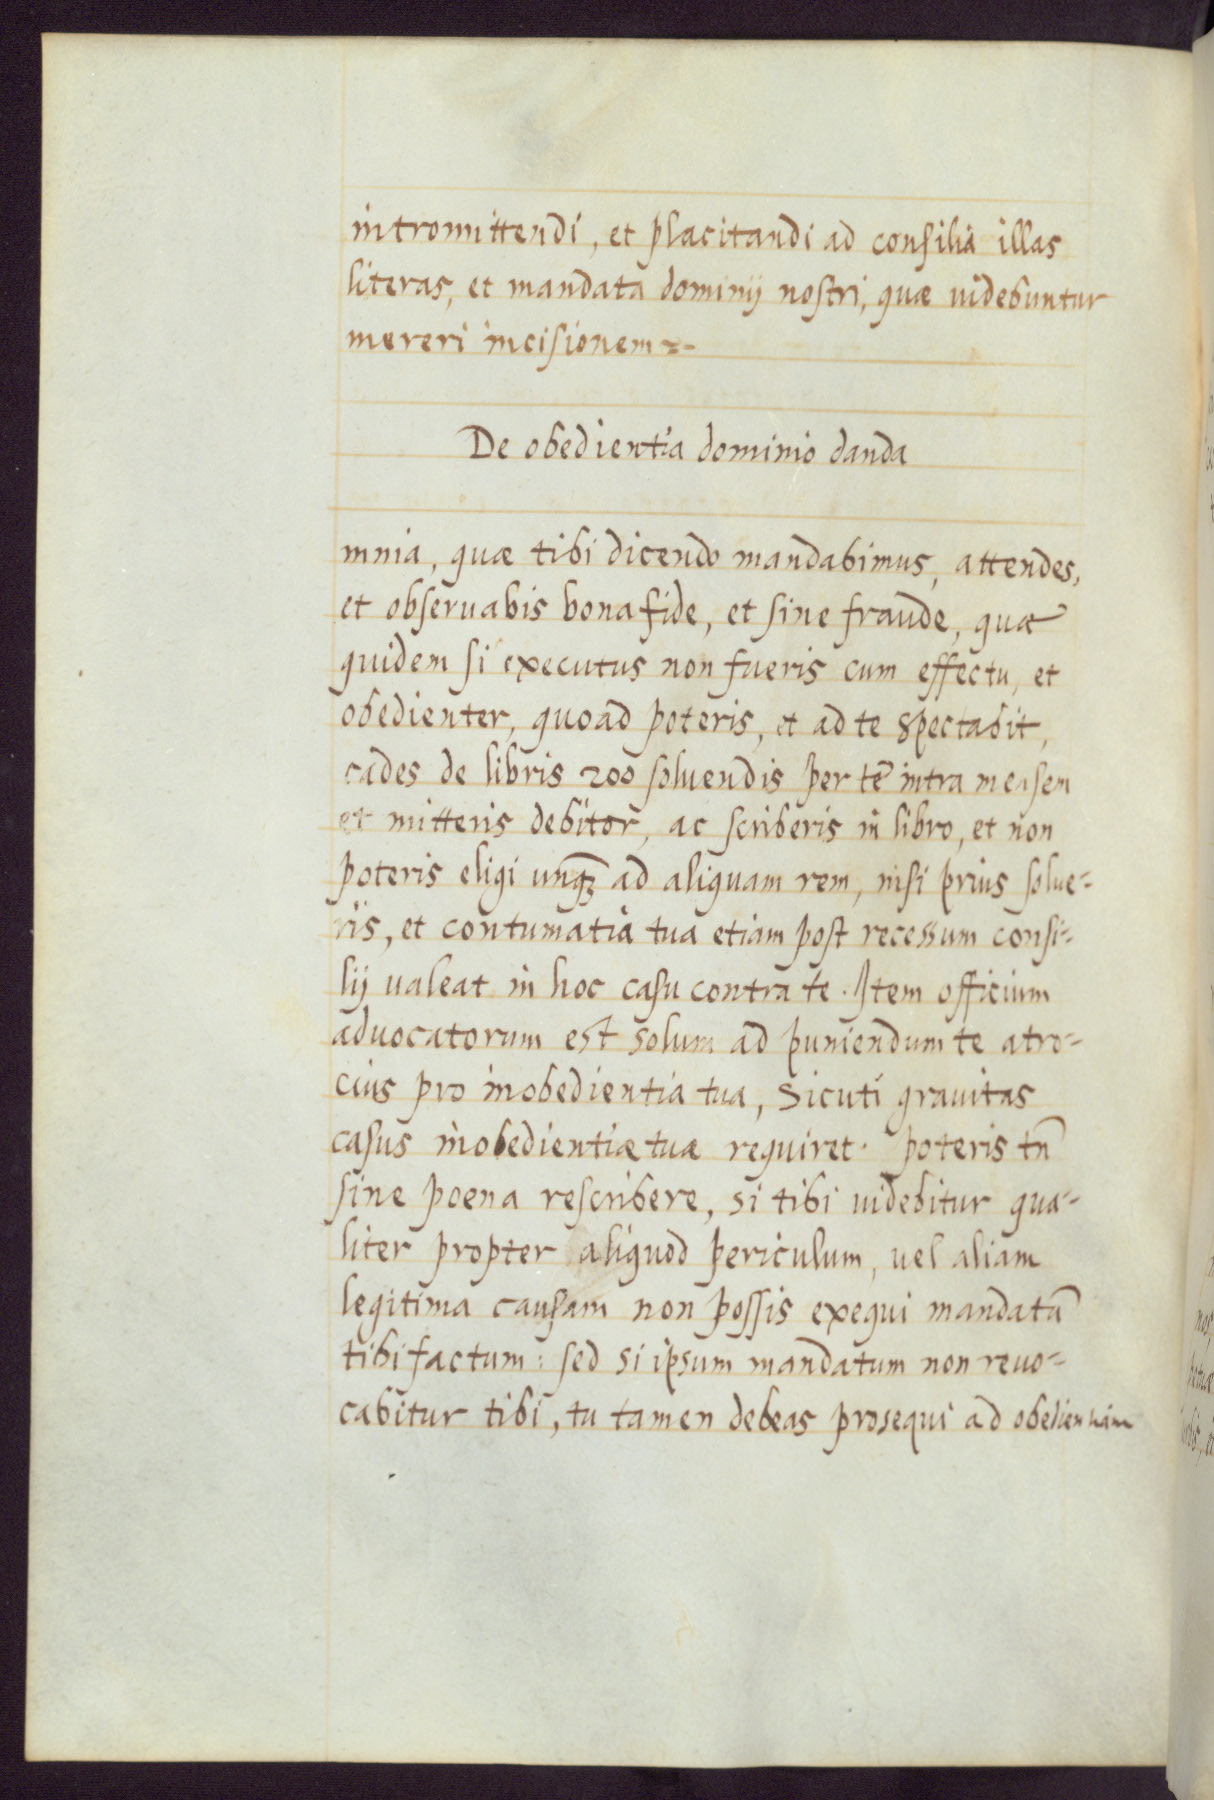 intromittendi, et placitandi ad consilia illas
literas, et mandata dominij nostri, quæ uidebuntur
mereri incisionem
De obedientia dominio danda
mnia, quæ tibi dicendo mandabimus, attendes,
et obseruabis bona fide, et sine fraude, quæ
quidem si executus non fueris cum effectu, et
obedienter, quoad poteris, et ad te spectabit,
cades de libris 200 soluendis per te intra mensem
et mitteris debitor, ac scriberis in libro, et non
poteris eligi unqȝ ad aliquam rem, nisi prius solue-
ris, et contumatia tua etiam post recessum consi-
lij ualeat in hoc casu contra te. Item officium
aduocatorum est solum ad puniendum te atro-
cius pro inobedientia tua, sicuti grauitas
casus inobedientiæ tuæ requiret. poteris tn̄
sine poena rescribere, si tibi uidebitur qua-
liter propter aliquod periculum, uel aliam
legitima causam non possis exequi mandatū
tibi factum: sed si ipsum mandatum non reuo-
cabitur tibi, tu tamen debeas prosequi ad obedientiam